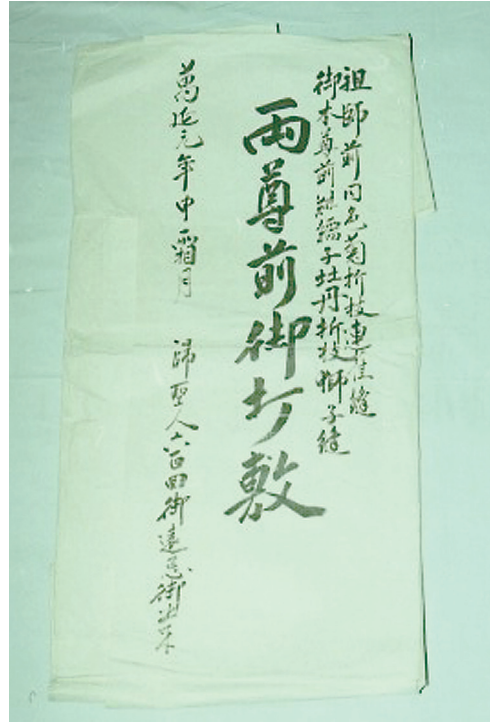 祖師前同色菊折枝連雀縫
御本尊前緋繻子牡丹折枝獅子縫
兩尊前御打敷
萬延元年申霜月 聖人六百回御遠忌御出来